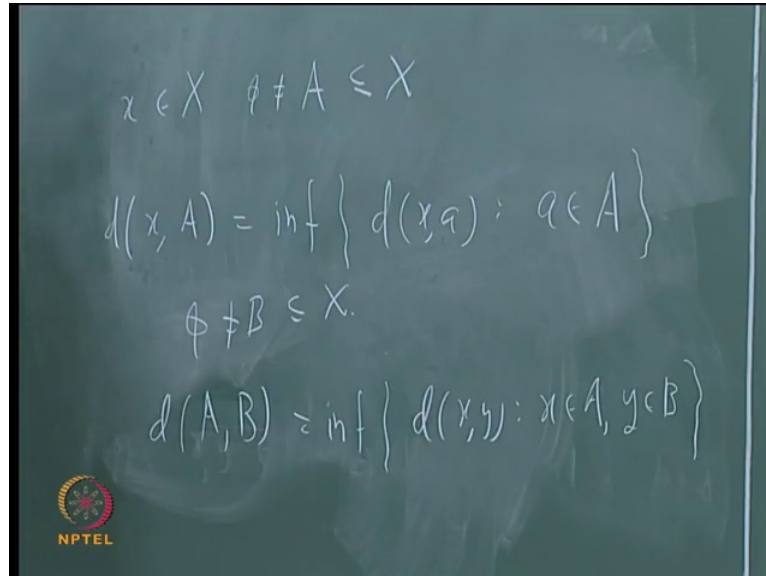 x ∈ X ϕ ≠ A ⊆ X
d(x, A) = inf { d(x,a) : a ∈ A }
ϕ ≠ B ⊆ X.
d(A, B) = inf { d(x,y) : x ∈ A, y ∈ B }
NPTEL